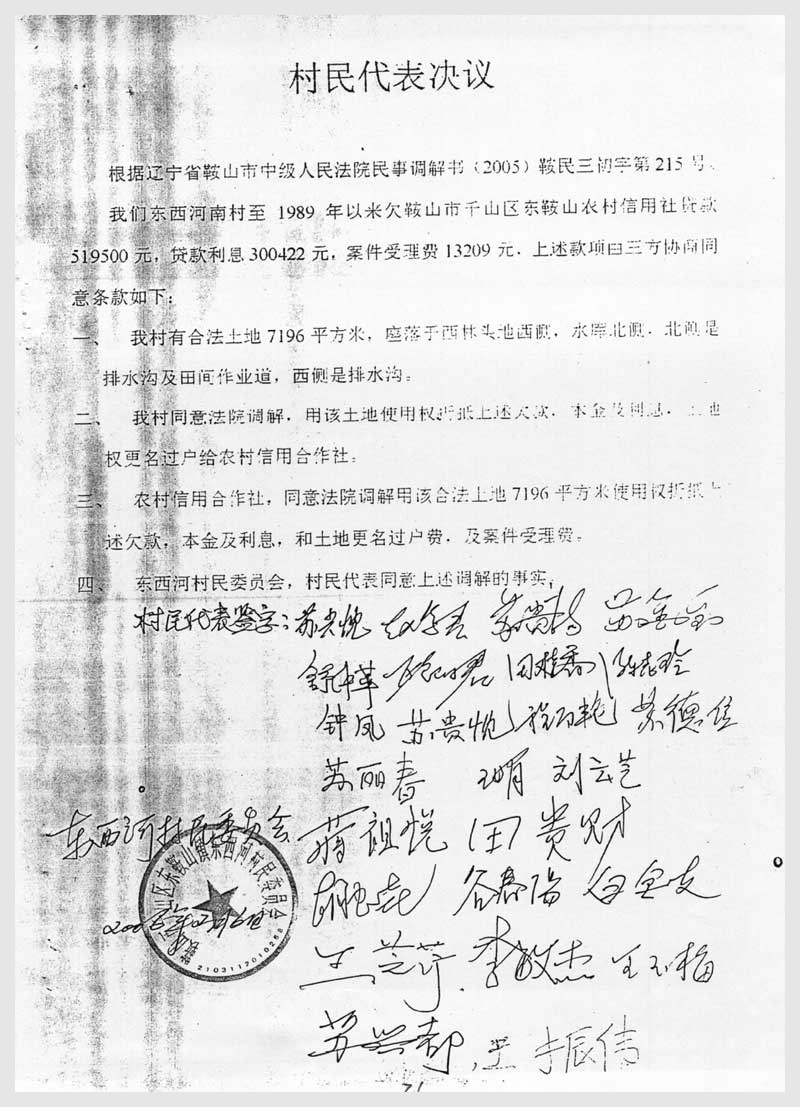 村民代表决议
根据辽宁省鞍山市中级人民法院民事调解书(2005)鞍民三初字第215号、
我们东西河南村至1989年以来欠鞍山市千山区东鞍山农村信用社贷款
519500元,贷款利息300422元,案件受理费13209元.上述款项由三方协商同
意条款如下:
一、 我村有合法土地7196平方米,座落于西林头地西侧,水库北侧.北侧是
排水沟及田间作业道,西侧是排水沟。
二、 我村同意法院调解,用该土地使用权折抵上述欠款.本金及利息.土地
权更名过户给农村信用合作社。
三、 农村信用合作社,同意法院调解用该合法土地7196平方米使用权折抵上
述欠款,本金及利息,和土地更名过户费.及案件受理费。
四、 东西河村民委员会,村民代表同意上述调解的事实,
村民代表签字:
田桂香
钟凤 苏贵悦 苏德佳
苏丽春 刘云芝
东西河村民委员会 蒋祖悦 田贵财
谷春阳 白金支
王芝芹 李敏杰 王玉梅
苏兴都 王振信
山区东鞍山镇东西河村民委员会
2103117010258